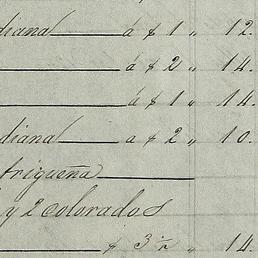 diana á $ 1 " 12.
á $ 2 " 14.
á $ 1 " 14.
diana a $ 2 " 10.
trigueña
y 2 colorados
$ 3 ½ " 14.